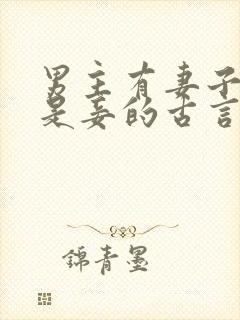 男主有妻子
是妾的古言
錦青墨